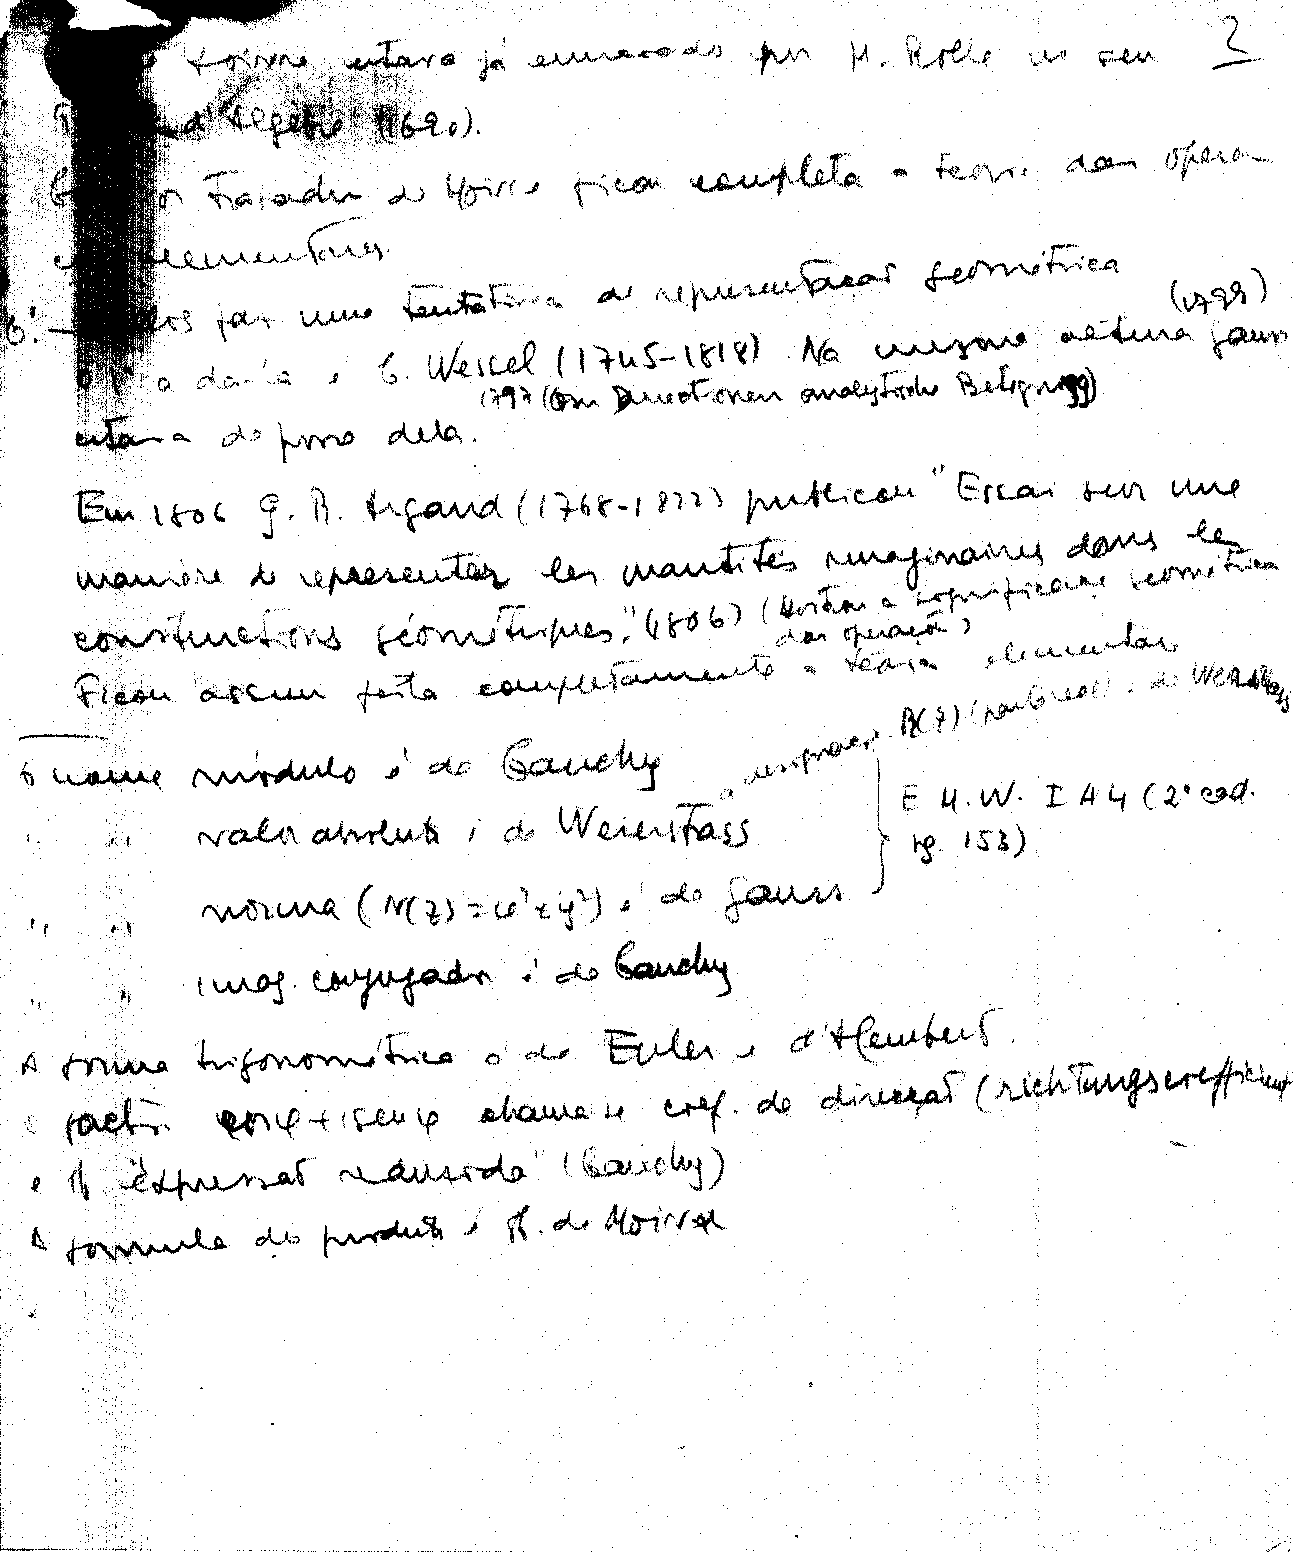 2
teorema estava já enunciado por M. Rolle no seu
d'Algèbre (1690).
Trabalhos de Moivre ficou completa a teoria das opera
elementares.
6. — faz uma tentativa de representação geométrica
a da-la é C. Wessel (1745-1818) Na mesma altura Gauss (1799)
1797 (Om Directionen analytiske Betegning)
estava de posse dela.
Em 1806 J. R. Argand (1768-1822) publicou "Essai sur une
manière de representer les quantités imaginaires dans les
constructions géométriques." (1806) (Mostra a significação geométrica
das operações)
Ficou assim feita completamente a teoria elementar
O nome módulo é de Cauchy
" " valor absoluto é de Weierstrass
a designação R(z) (parte real) é de Weierstrass
E. M. W. I A 4 (2ª ed.
pg. 153)
" " norma (N(z)=x²+y²) é de Gauss
" " imag. conjugado é de Cauchy
A forma trigonométrica é de Euler e d'Alembert.
O factor cosφ+isenφ chama-se coef. de direcção (richtungscoefficient)
e "expressão reduzida" (Cauchy)
A formula do produto é de Moivre